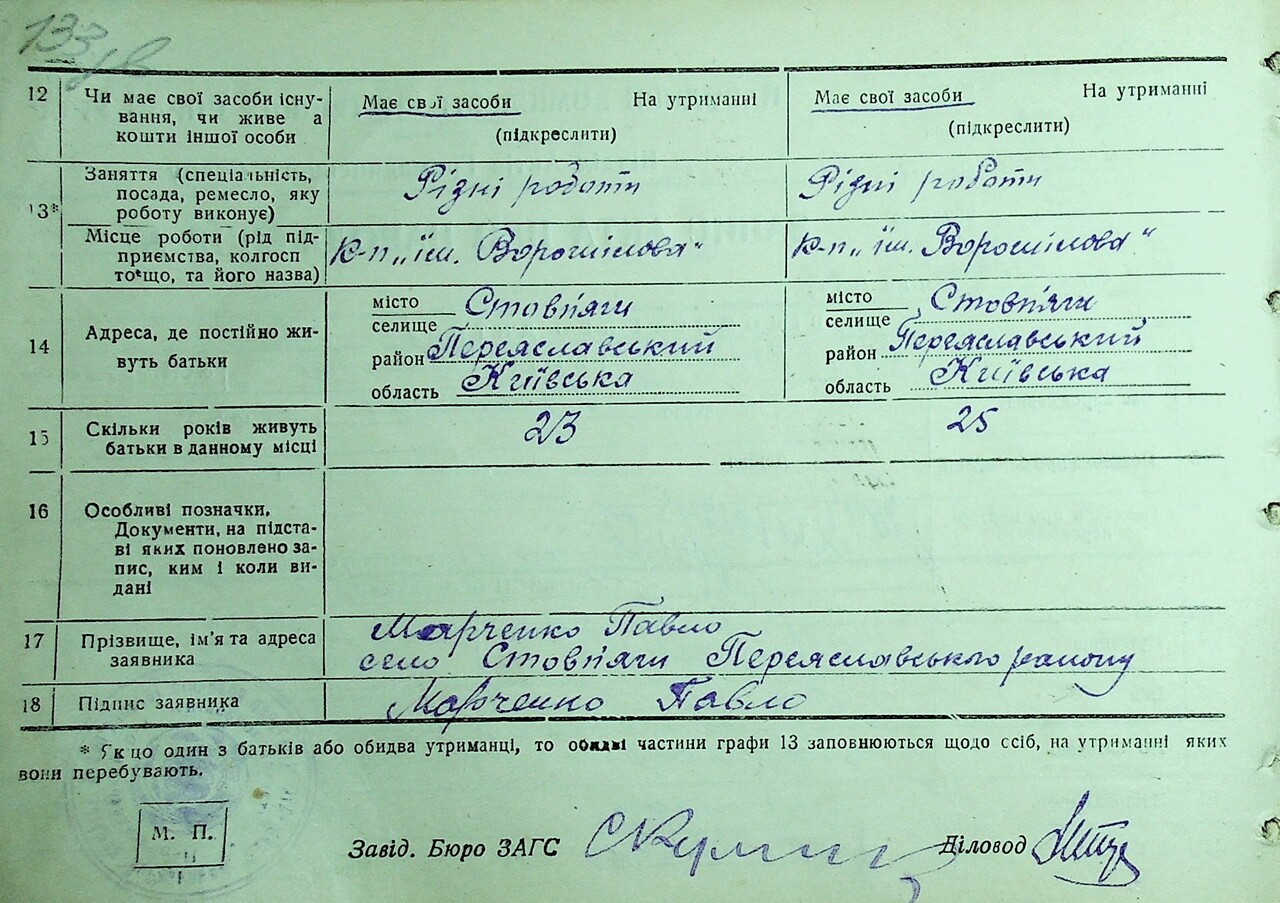 133
12 Чи має свої засоби існу-
вання, чи живе а
кошти іншої особи
Має свої засоби На утриманні
(підкреслити)
Має свої засоби На утриманні
(підкреслити)
13* Заняття (спеціальність,
посада, ремесло, яку
роботу виконує)
Рідні роботи
Рідні роботи
Місце роботи (рід під-
приємства, колгосп
тощо, та його назва)
к-п „ім. Ворошілова"
к-п „ім. Ворошілова"
14 Адреса, де постійно жи-
вуть батьки
місто
селище Стовпяги
район Переяславський
область Київська
місто
селище Стовпяги
район Переяславський
область Київська
15 Скільки років живуть
батьки в данному місці
23
25
16 Особливі позначки.
Документи, на підста-
ві яких поновлено за-
пис, ким і коли ви-
дані
17 Прізвище, ім'я та адреса
заявника
Марченко Павло
село Стовпяги Переяславського району
18 Підпис заявника
Марченко Павло
* Якщо один з батьків або обидва утриманці, то обидві частини графи 13 заповнюються щодо осіб, на утриманні яких
вони перебувають.
М. П.
Завід. Бюро ЗАГС
Діловод